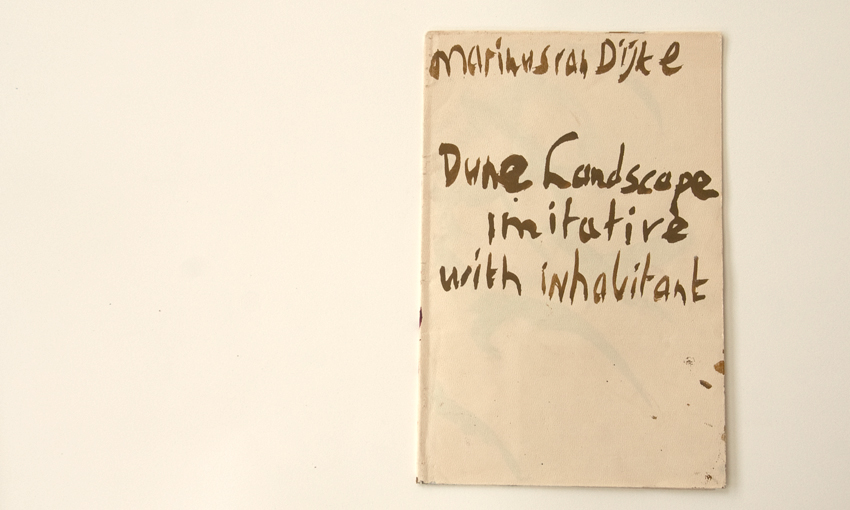 Marinus van Dijke
Dune Landscape
imitative
with inhabitant